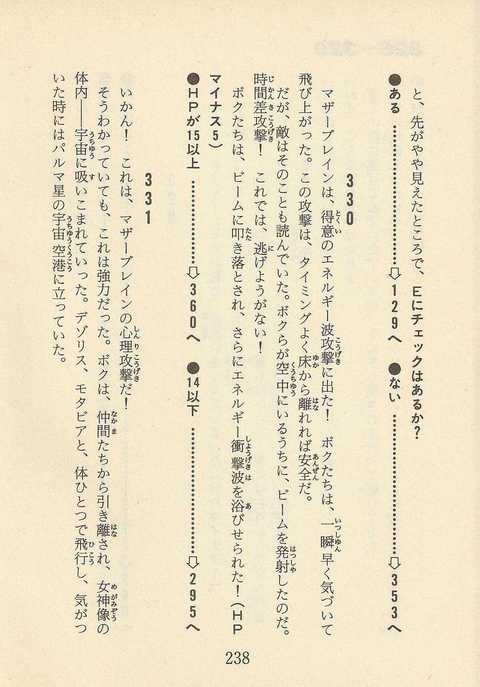 と、先がやや見えたところで、Eにチェックはあるか？
●ある……………⇨129へ ●ない……………⇨353へ
330
マザーブレインは、得意のエネルギー波攻撃に出た！ ボクたちは、一瞬早く気づいて
飛び上がった。この攻撃は、タイミングよく床から離れれば安全だ。
だが、敵はそのことも読んでいた。ボクらが空中にいるうちに、ビームを発射したのだ。
時間差攻撃！ これでは、逃げようがない！
ボクたちは、ビームに叩き落とされ、さらにエネルギー衝撃波を浴びせられた！（HP
マイナス5）
●HPが15以上……………⇨360へ ●14以下……………⇨295へ
331
いかん！ これは、マザーブレインの心理攻撃だ！
そうわかっていても、これは強力だった。ボクは、仲間たちから引き離され、女神像の
体内――宇宙に吸いこまれていった。デゾリス、モタビアと、体ひとつで飛行し、気がつ
いた時にはパルマ星の宇宙空港に立っていた。
238